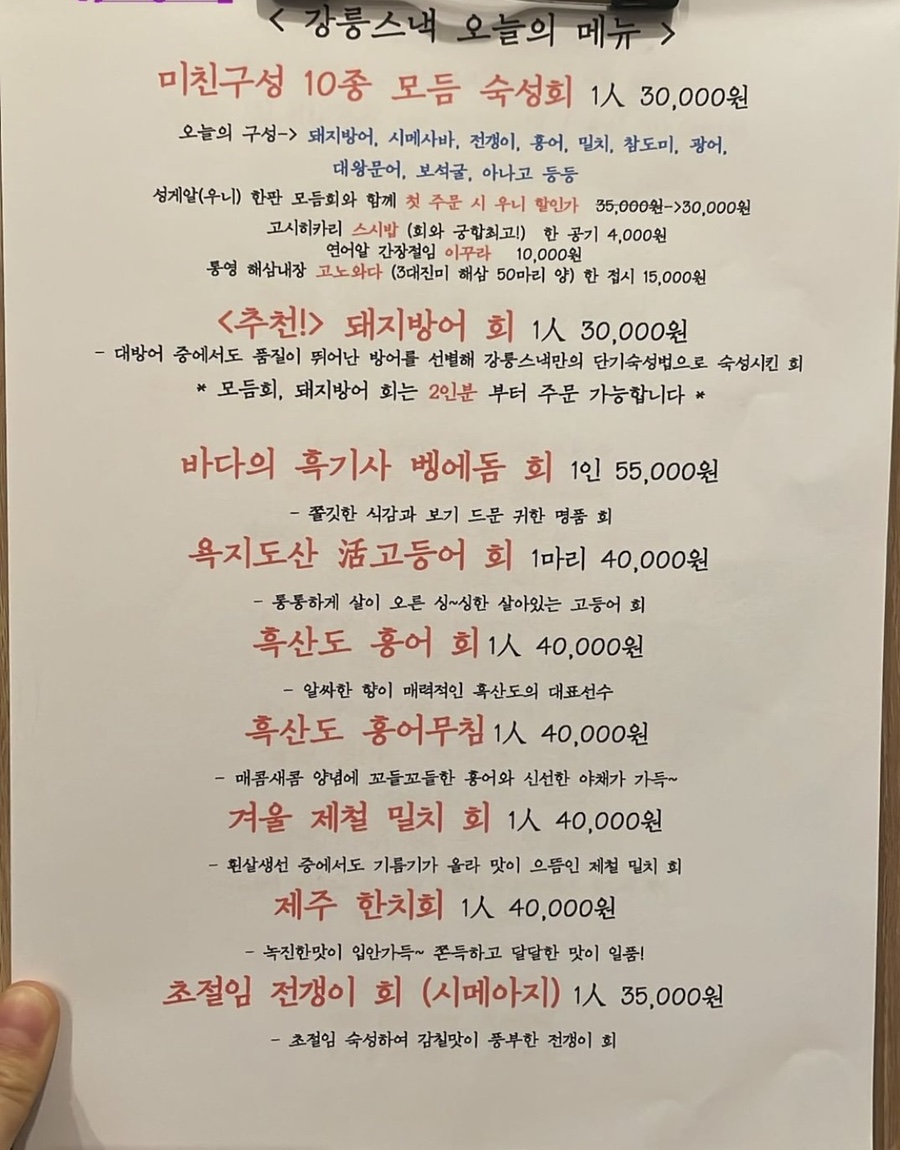 < 강릉스낵 오늘의 메뉴 >
미친구성 10종 모듬 숙성회 1人 30,000원
오늘의 구성-> 돼지방어, 시메사바, 전갱이, 홍어, 밀치, 참도미, 광어,
대왕문어, 보석굴, 아나고 등등
성게알(우니) 한판 모듬회와 함께 첫 주문 시 우니 할인가 35,000원->30,000원
고시히카리 스시밥 (회와 궁합최고!) 한 공기 4,000원
연어알 간장절임 이꾸라 10,000원
통영 해삼내장 고노와다 (3대진미 해삼 50마리 양) 한 접시 15,000원
<추천!> 돼지방어 회 1人 30,000원
- 대방어 중에서도 품질이 뛰어난 방어를 선별해 강릉스낵만의 단기숙성법으로 숙성시킨 회
* 모듬회, 돼지방어 회는 2인분 부터 주문 가능합니다 *
바다의 흑기사 벵에돔 회 1인 55,000원
- 쫄깃한 식감과 보기 드문 귀한 명품 회
욕지도산 活고등어 회 1마리 40,000원
- 통통하게 살이 오른 싱~싱한 살아있는 고등어 회
흑산도 홍어 회 1人 40,000원
- 알싸한 향이 매력적인 흑산도의 대표선수
흑산도 홍어무침 1人 40,000원
- 매콤새콤 양념에 꼬들꼬들한 홍어와 신선한 야채가 가득~
겨울 제철 밀치 회 1人 40,000원
- 흰살생선 중에서도 기름기가 올라 맛이 으뜸인 제철 밀치 회
제주 한치회 1人 40,000원
- 녹진한맛이 입안가득~ 쫀득하고 달달한 맛이 일품!
초절임 전갱이 회 (시메아지) 1人 35,000원
- 초절임 숙성하여 감칠맛이 풍부한 전갱이 회